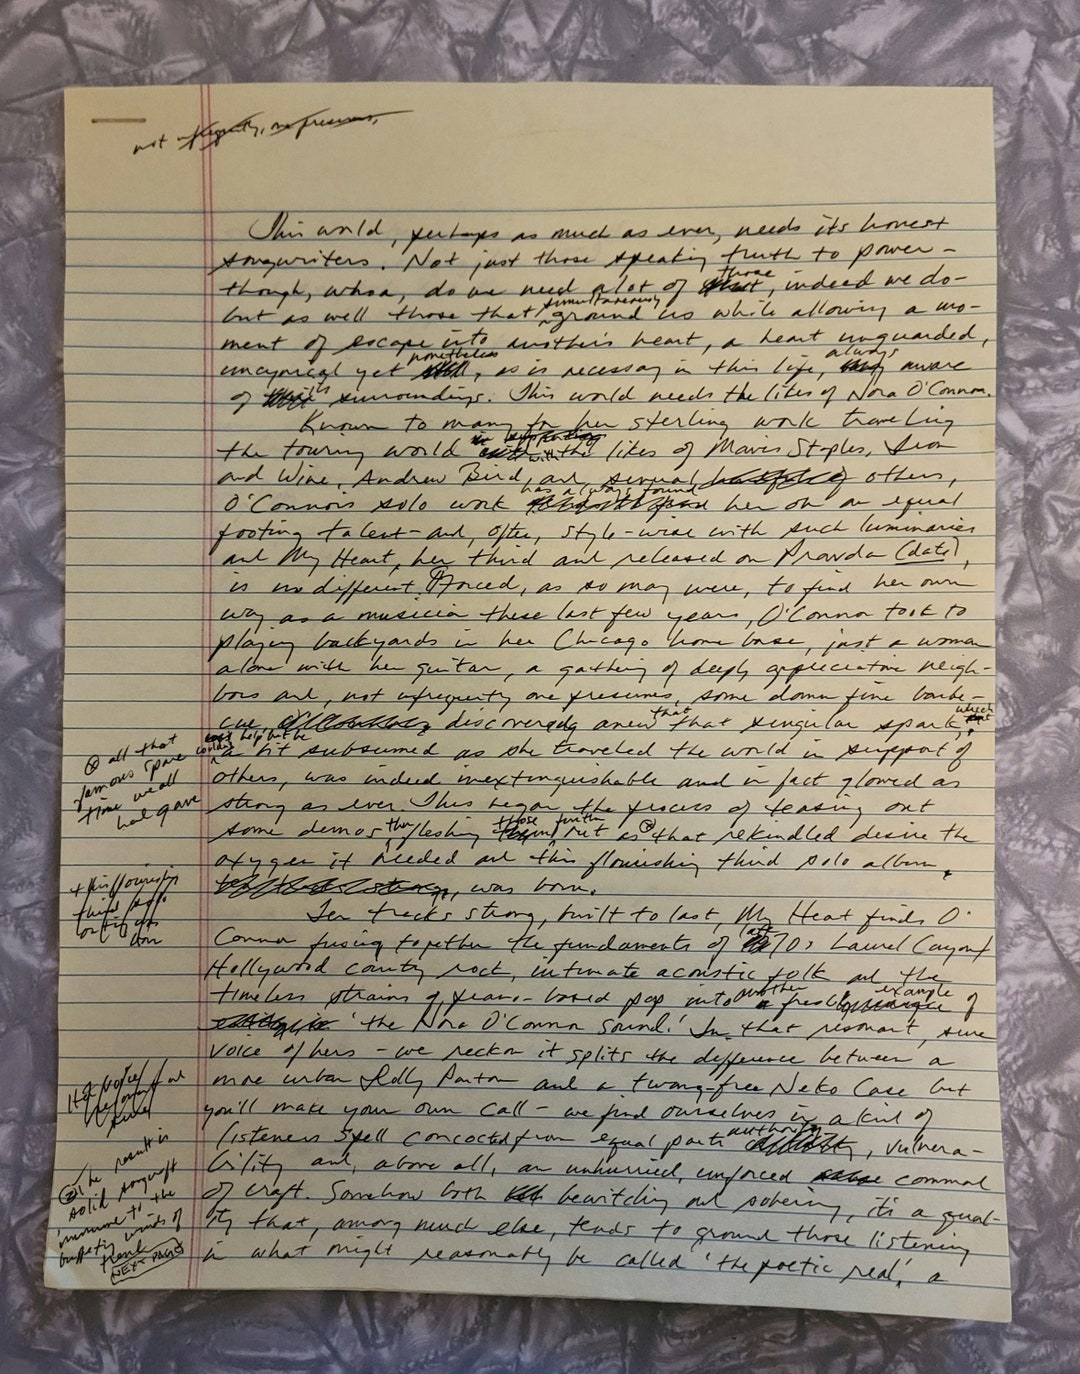 not infrequently, one presumes,
This world, perhaps as much as ever, needs its honest
songwriters. Not just those speaking truth to power –
though, whoa, do we need a lot of those, indeed we do –
but as well those that simultaneously ground us while allowing a mo-
ment of escape into another's heart, a heart unguarded,
uncynical yet nonetheless, as is necessary in this life, always aware
of its surroundings. This world needs the likes of Nora O'Connor.
Known to many for her sterling work traveling
the touring world with the likes of Mavis Staples, Iron
and Wine, Andrew Bird, and several others,
O'Connor's solo work has always found her on an equal
footing talent – and, often, style-wise with such luminaries
and My Heart, her third and released on Pravda (date),
is no different. Forced, as so many were, to find her own
way as a musician these last few years, O'Connor took to
playing backyards in her Chicago home base, just a woman
alone with her guitar, a gathering of deeply appreciative neigh-
bors and, not infrequently one presumes, some damn fine barbe-
cue, discovered anew that that singular spark, which
couldn't help but be a bit subsumed as she traveled the world in support of
others, was indeed inextinguishable and in fact glowed as
strong as ever. This began the process of teasing out
some demos then fleshing those further out as that rekindled desire the
oxygen it needed and this flourishing third solo album,
was born.
⊗ all that
famous spare
time we all
had gave
+ this flourishing
third
born
Ten tracks strong, built to last, My Heart finds O'
Connor fusing together the fundaments of last 70s Laurel Canyon/
Hollywood country rock, intimate acoustic folk and the
timeless strains of piano-based pop into another fresh example of
'the Nora O'Connor sound.' In that resonant, sure
voice of hers – we reckon it splits the difference between a
more urban Dolly Parton and a twang-free Neko Case but
you'll make your own call – we find ourselves in a kind of
listeners spell concocted from equal parts authority, vulnera-
bility and, above all, an unhurried, unforced command
of craft. Somehow both bewitching and sobering, it's a qual-
ity that, among much else, tends to ground those listening
in what might reasonably be called 'the poetic real', a
Her voice/
resonant and
⊗ The result is
solid songcraft
immune to the
buffeting winds of
trend
NEXT PAGE